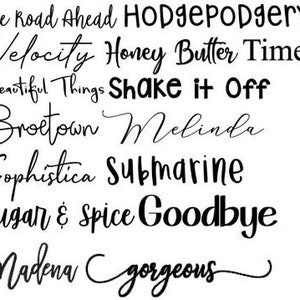 e Road Ahead Hodgepodgery
Velocity Honey Butter Time
Beautiful Things Shake it Off
Broetown Melinda
Sophistica Submarine
Sugar & Spice Goodbye
Madena Gorgeous